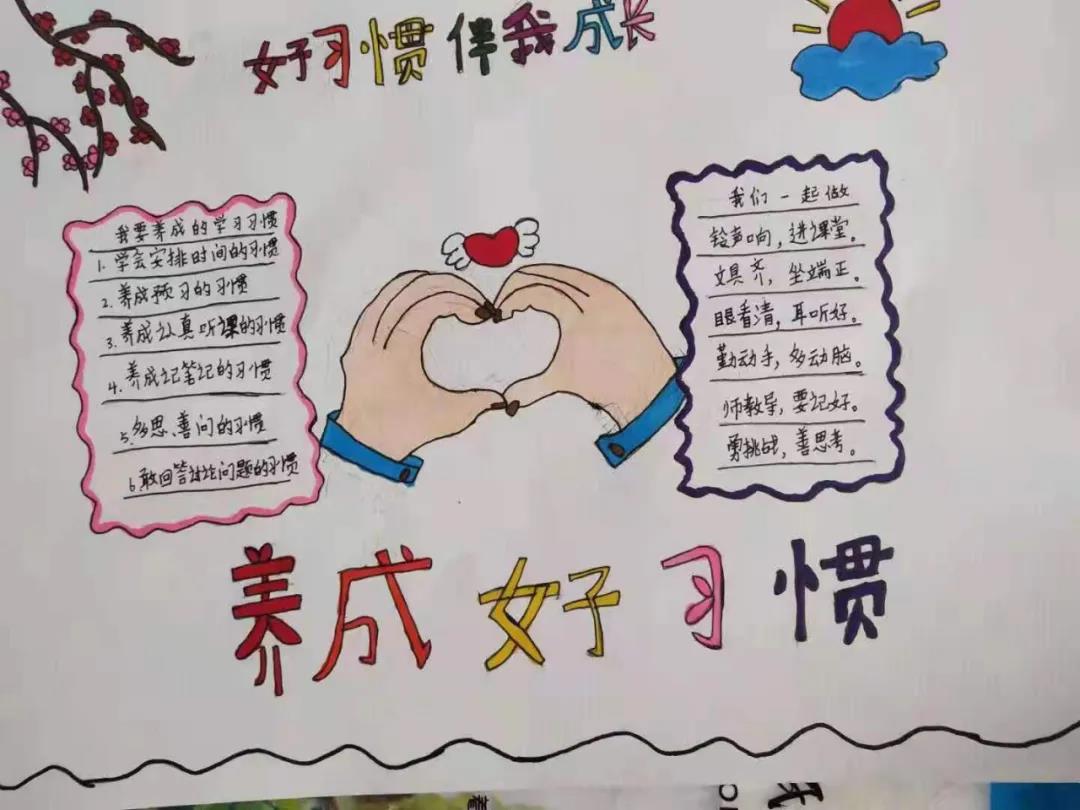 好习惯伴我成长
我要养成的学习习惯
1. 学会安排时间的习惯
2. 养成预习的习惯
3. 养成认真听课的习惯
4. 养成记笔记的习惯
5. 多思、善问的习惯
6. 敢回答讨论问题的习惯
我们一起做
铃声响，进课堂。
文具齐，坐端正。
眼看清，耳听好。
勤动手，多动脑。
师教导，要记好。
勇挑战，善思考。
养成好习惯